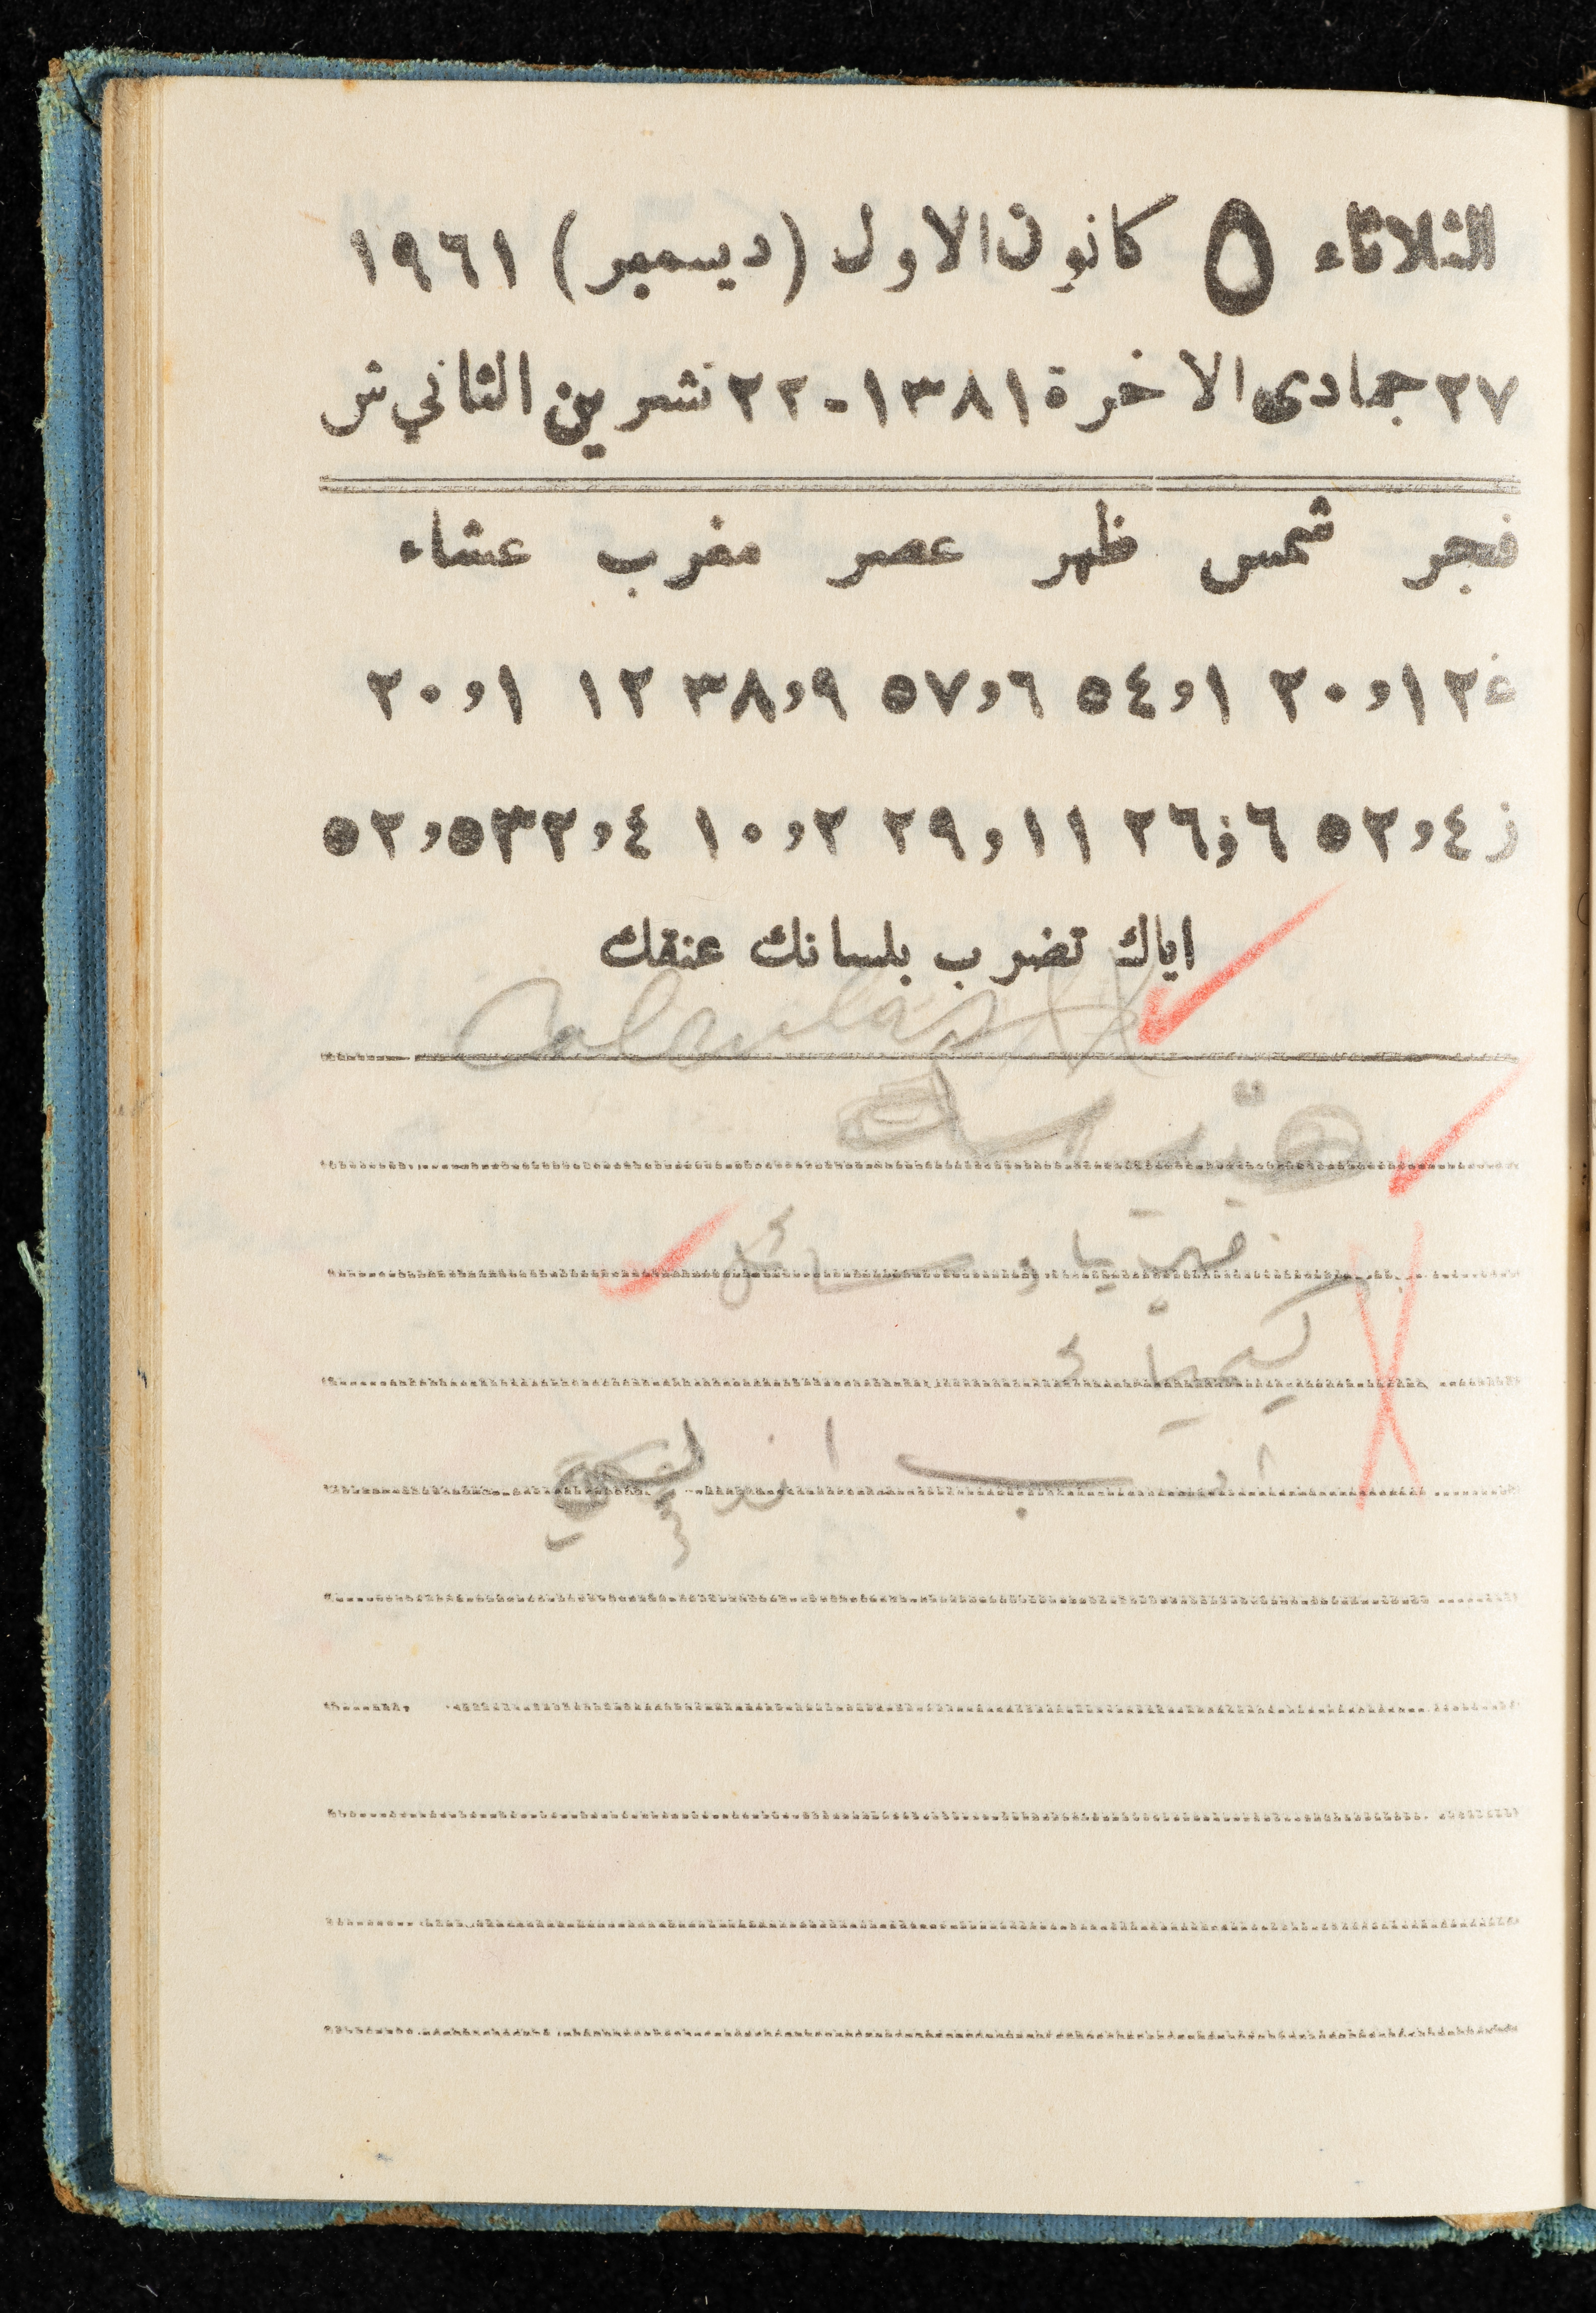 الثلاثاء ٥ كانون الاول (ديسمبر) ١٩٦١
٢٧ جمادى الاخرة ١٣٨١ - ٢٢ تشرين الثاني ش
فجر شمس ظهر عصر مغرب عشاء
غ ١٢,٢٠ ١,٥٤ ٦,٥٧ ٩,٣٨ ١٢ ١,٢٠
ز ٤,٥٢ ٦,٢٦ ١١,٢٩ ٢,١٠ ٤,٣٢ ٥,٥٢
اياك تضرب بلسانك عنقك
Calculas
هندسة
فيزياء
كيمياء
أدب انكليزي